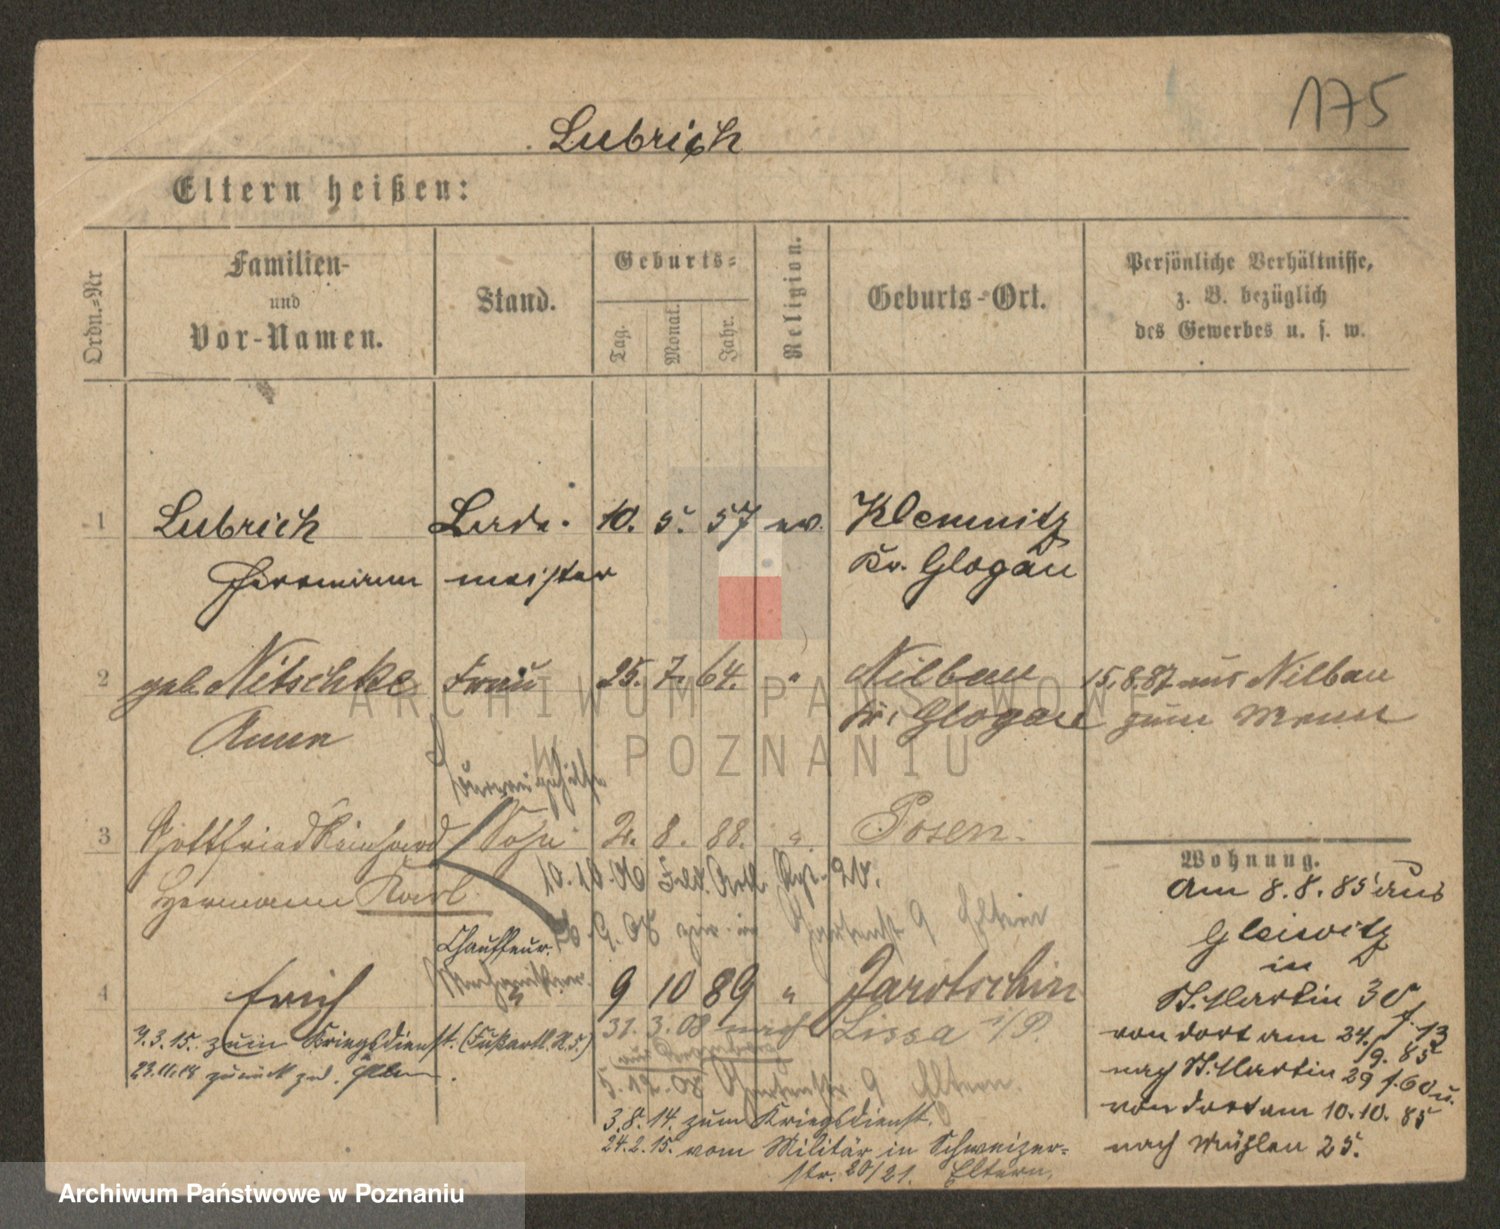 175
Lubrich
Eltern heißen:
Ordn.-Nr
Familien-
und
Vor-Namen.
Stand.
Geburts-
Tag.
Monat.
Jahr.
Religion.
Geburts-Ort.
Persönliche Verhältnisse,
z. B. bezüglich
des Gewerbes u. s. w.
1 Lubrich Lade- 10. 5. 57 ev. Klemnitz
Herrmann meister Kr. Glogau
2 geb. Nitschke Frau 25. 7. 64. " Nilbau 15.8.87 aus Nilbau
Anna Kr. Glogau zum Mann
ARCHIWUM PAŃSTWOWE
W POZNANIU
3 Gottfried Reinhard Sohn 2. 8. 88. " Posen.
Hermann Karl
10.10. Feld. Art. Rgt. 20.
9 Eltern
Chauffeur.
4 Erich " 9 10 89 " Jarotschin
31. 3. 08 nach Lissa i/P.
4.3.15. zum Kriegsdienst. (Fußartl. R. 5.)
23.11.18 zurück
5. 12. 08 Gartenstr. 9 Eltern.
3.8.14. zum Kriegsdienst.
24.2.15. vom Militär in Schweizer-
str. 20/21. Eltern.
Wohnung.
Am 8.8.85 aus
Gleiwitz
in
St. Martin 30
von dort am 24./9. 85
nach St. Martin 29 u.
von dort am 10.10. 85
nach Mühlen 25.
Archiwum Państwowe w Poznaniu